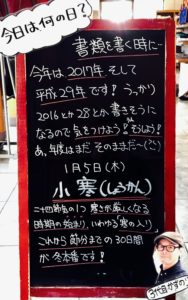 今日は何の日?
書類を書く時に…
今年は2017年 そして
平成29年です! うっかり
2016とか28とか 書きそうに
なるので 気をつけよう! しましょう!
あ、年度はまだ そのままだ〜(ごう)
1月5日(木)
小寒(しょうかん)
二十四節気の1つ 寒さが厳しくなる
時期の始まり、いわゆる「寒の入り」
これから 節分までの30日間
が 冬本番です!
3代目かずの